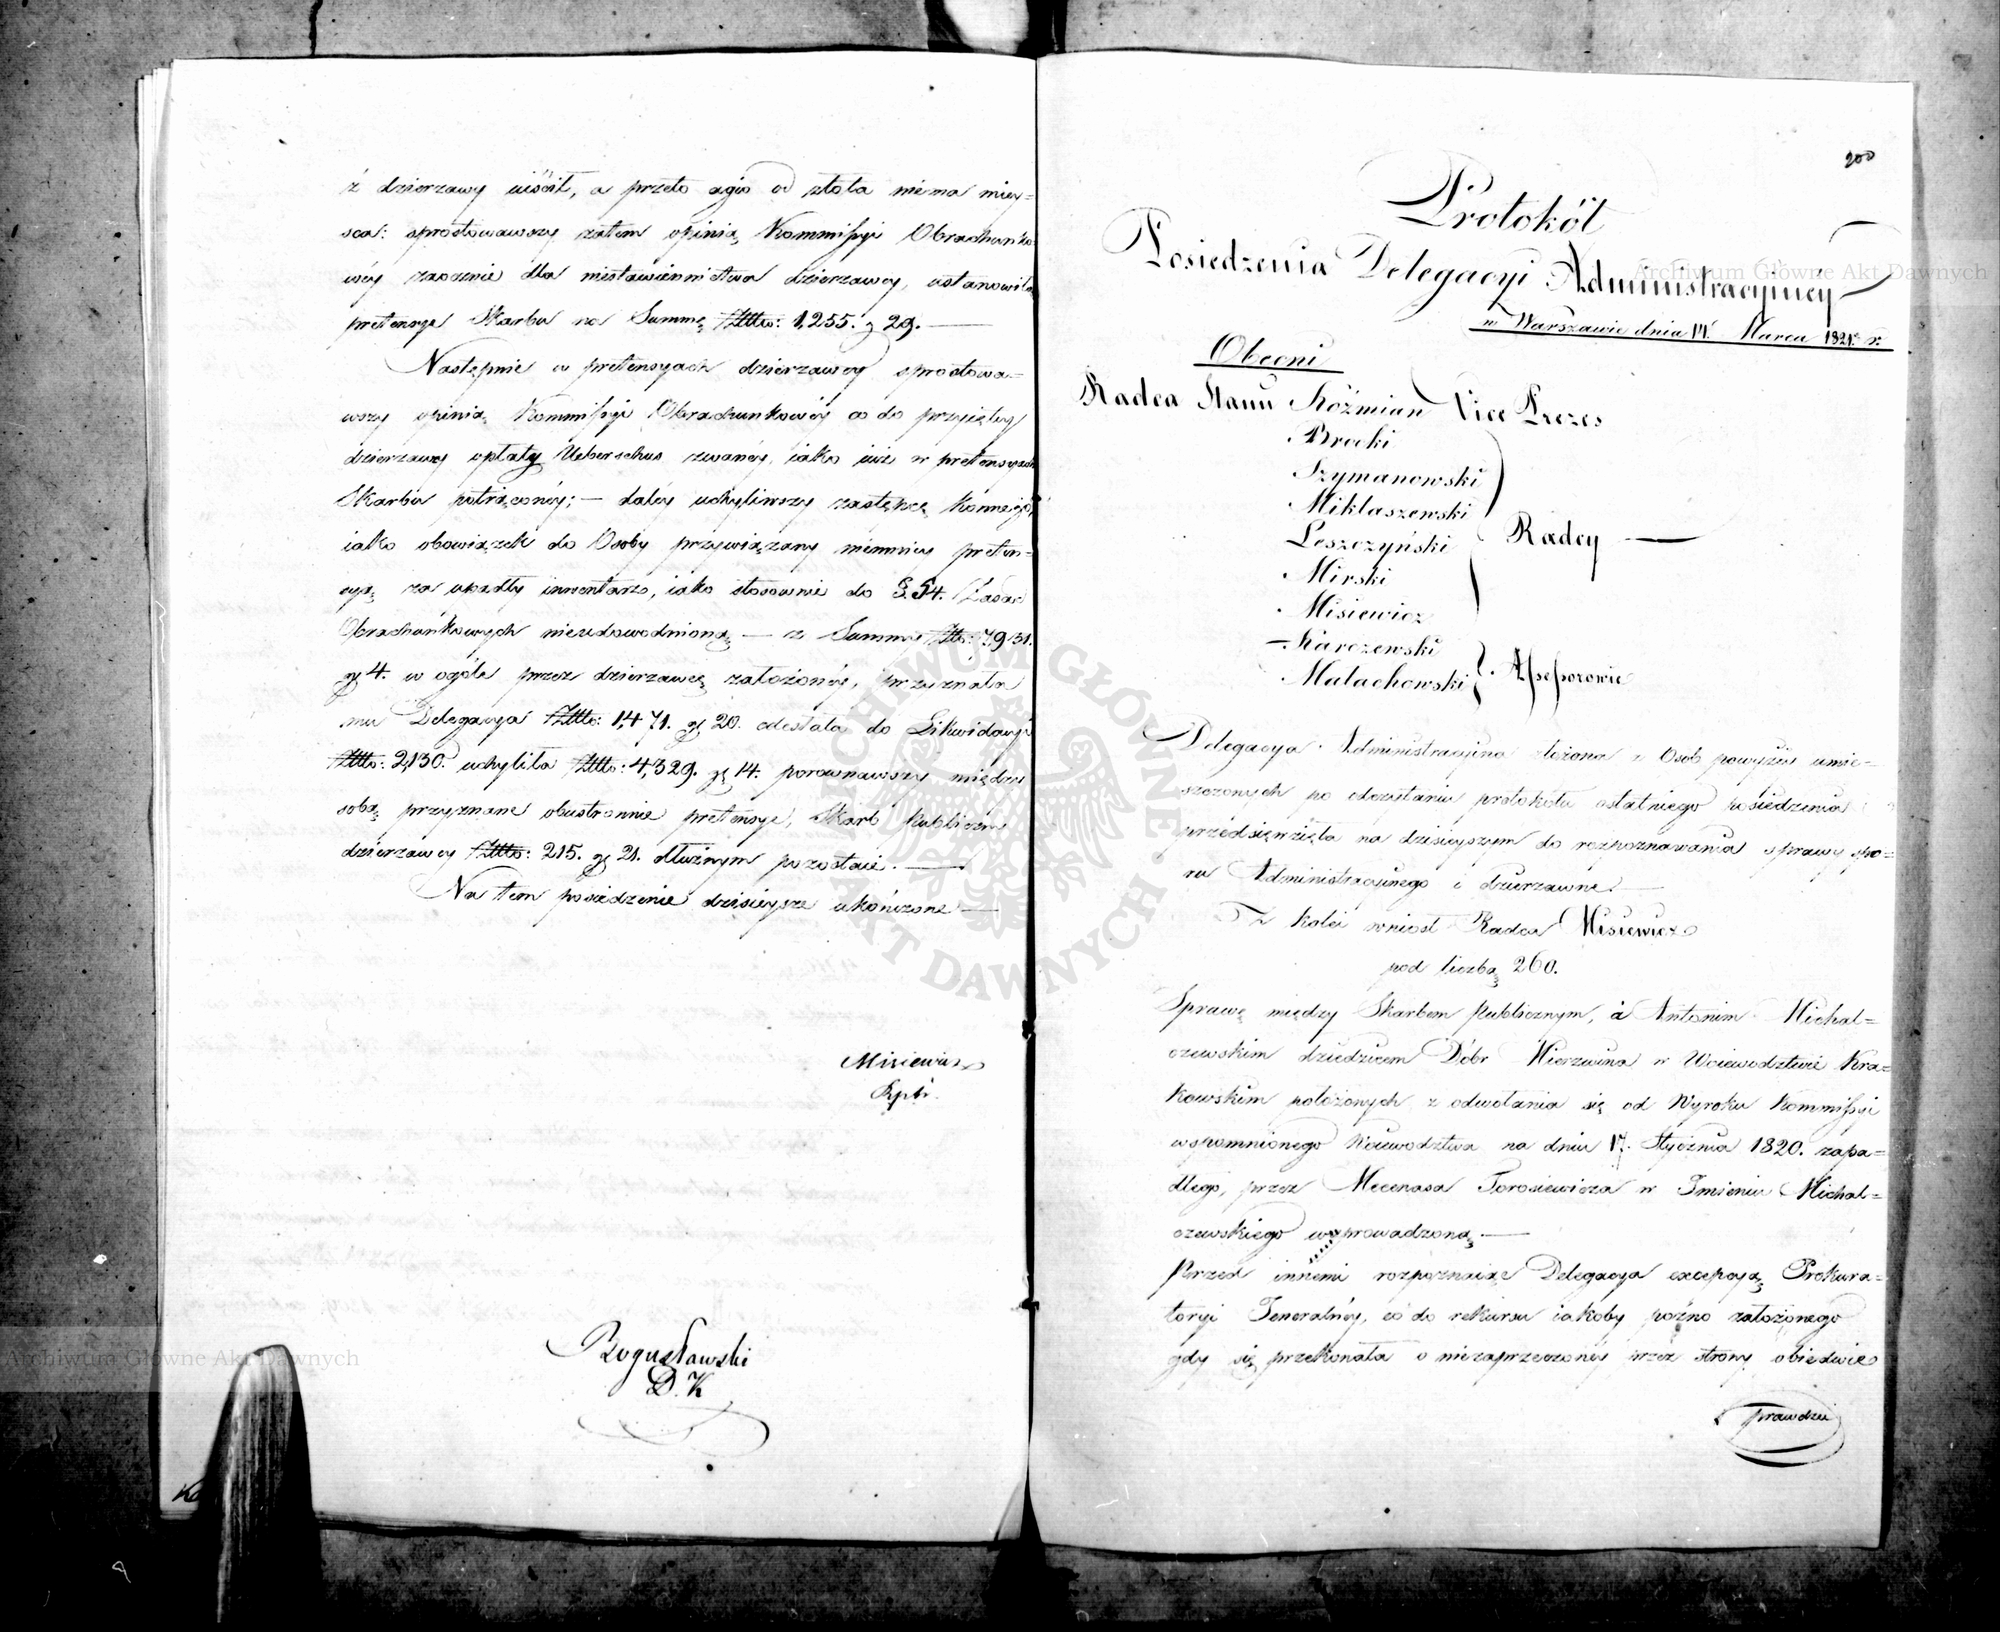 z dzierzawy uiścił, a przeto agio od złota niema miey=
sca: sprostowawszy zatem opinią Kommissyi Obrachunko
wéy zaocznie dla niestawiennictwa dzierzawcy, ustanowiła
pretensye Skarbu na Summę Złło: 1,255. g 29. —
Następnie w pretensyach dzierzawcy sprostowa=
wszy opinią Kommissyi Obrachunkowéy co do przyjętey
dzierzawcy opłaty Ueberschus zwanéy, iako iuż w pretensyach
Skarbu potrąconéy; — daléy uchyliwszy zastępcę konnego,
iako obowiązek do Osoby przywiązany niemniey preten=
syą za upadły inwentarz, iako stosownie do §. 54. Zasad
Obrachunkowych nieudowodnioną — z Summy Złło: 7,931.
gr 4. w ogóle przez dzierzawcę założonéy, przyznała
mu Delegacya Złło: 1,471. gr 20. odesłała do Likwidacyi
Złło: 2,130. uchyliła Złło: 4,329. gr 14. porownawszy między
sobą przyznane obustronnie pretensye, Skarb Publiczny
dzierzawcy Złło: 215. gr 21. dłużnym pozostaie. —
Na tem posiedzenie dzisieysze ukończone —
Misiewicz
Rptr.
Bogusławski
D. K
200
Protokół
Posiedzenia Delegacyi Administracyiney
w Warszawie dnia 14. Marca 1821. r.
Obecni
Radca Stanu Koźmian Vice Prezes
Brocki
Szymanowski
Miklaszewski
Leszczyński Radcy —
Mirski
Misiewicz
Karczewski
Małachowski Assessorowie
Delegacya Administracyina złożona z Osób powyżey umie=
szczonych po odczytaniu protokułu ostatniego posiedzenia
przedsięwzięła na dzisieyszym do rozpoznawania sprawy spo=
ru Administracyinego i dzierzawne. —
Z kolei wniosł Radca Misiewicz
pod liczbą 260.
Sprawę między Skarbem Publicznym, a Antonim Michal=
czewskim dziedzicem Dóbr Mierzwina w Woiewodztwie Kra=
kowskim położonych z odwołania się od Wyroku Kommissyi
wspomnionego Woiewodztwa na dniu 17. Stycznia 1820. zapa=
dłego, przez Mecenasa Torosiewicza w Imieniu Michal=
czewskiego wyprowadzoną —
Przed innemi rozpoznaiąc Delegacya excepcyą Prokura=
toryi Jeneralnéy, co do rekursu iakoby poźno założonego
gdy się przekonała o niezaprzeczonéy przez strony obiedwie
prawdzi
Archiwum Główne Akt Dawnych
Archiwum Główne Akt Dawnych
ARCHIWUM GŁÓWNE AKT DAWNYCH